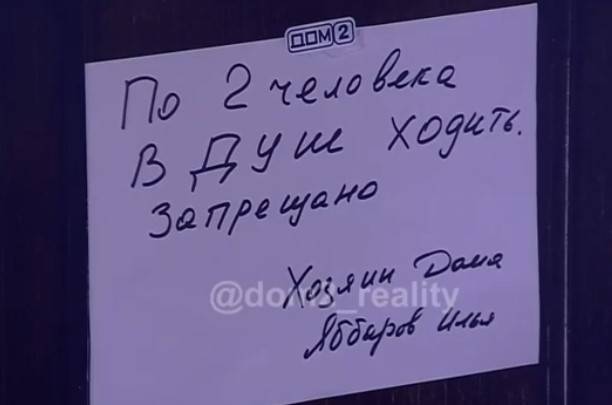 ДОМ2
По 2 человека
в душ ходить.
запрещано
Хозяин Дома
@dom2_reality
Яббаров Илья